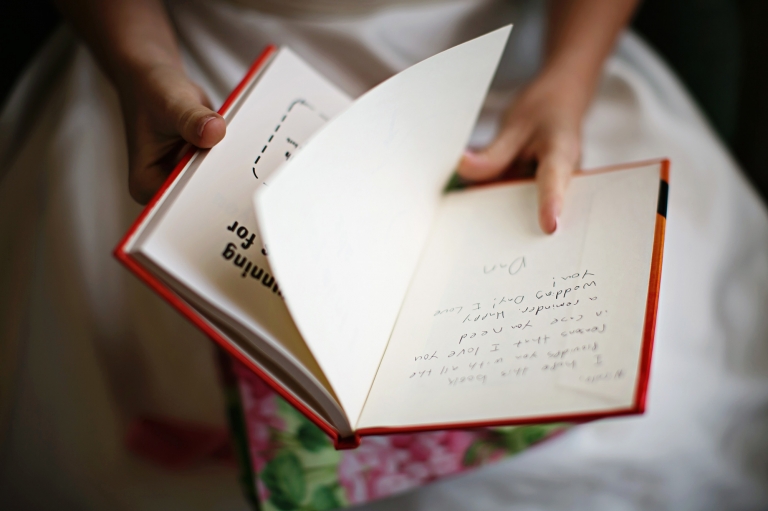 I hope this book
Provides you with all the
reasons that I love you
in case you need
a reminder. Happy
Wedding Day! I love
You!
Dan
for